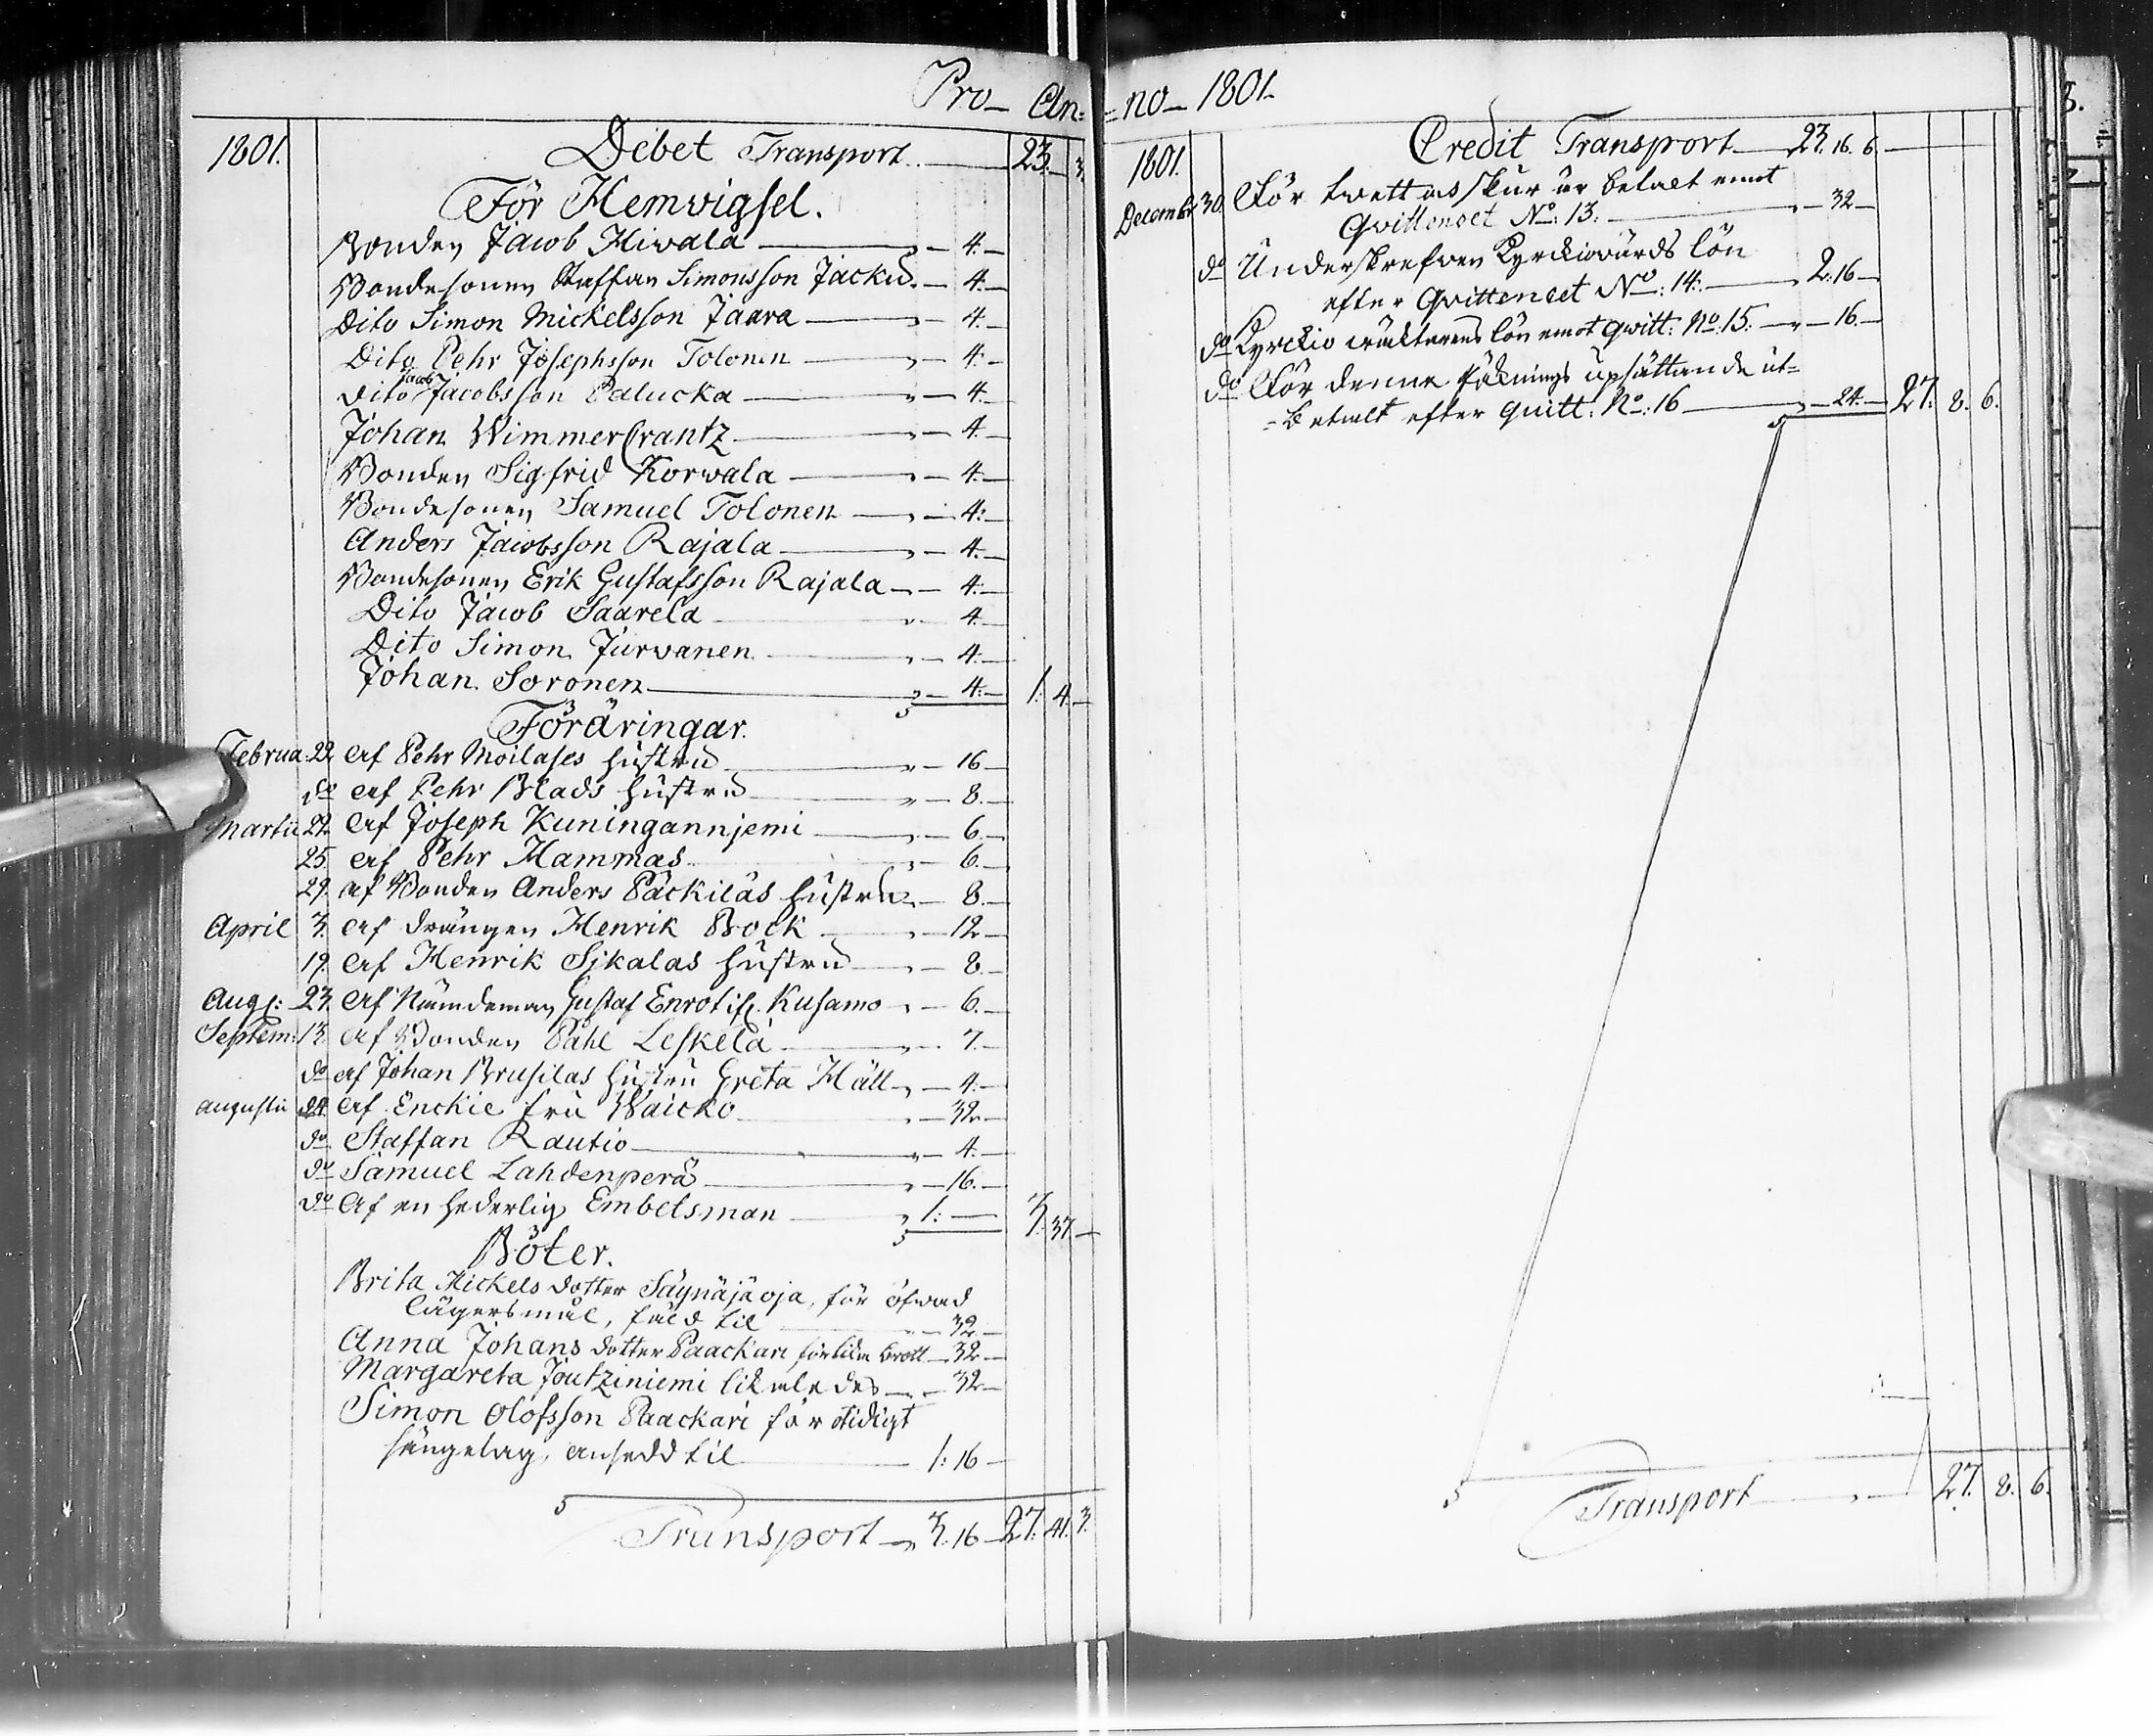 Pro- An=
1801. Debet Transport 23. 3.
För Hemvigsel.
Bonden Jacob Hivala 4.
Bondesonen Staffan Simonsson Jacku 4.
Dito Simon Mickelsson Jaara 4.
Dito Pehr Josephsson Tolonen 4.
Dito Jacob Jacobsson Palucka 4.
Johan Wimmercrantz 4.
Bonden Sigfrid Korwala 4.
Bondesonen Samuel Tolonen 4.
Anders Jacobsson Rajala 4.
Bondesonen Erik Gustafsson Rajala 4.
Dito Jacob Saarela 4.
Dito Simon Jurvanen 4.
Johan Soronen 4. 1. 4.
Föräringar.
Februa: 22. af Pehr Moilases hustru 16
do af Pehr Blads hustru 8.
Martii 22. af Joseph Kuningannjemi 6.
25. af Pehr Hammas 6.
29. af Bonden Anders Päckiläs hustru 8.
April 3. af drängen Henrik Bock 12
19. af Henrik Sikalas hustru 8.
Aug: 23. af Nämndeman Gustaf Enrot if. Kusamo 6.
Septem: 13. af Bonden Påhl Leskelä 7.
do af Johan Brusilas hustru Greta Häll 4.
augusti 24. af Enckie fru Waicko 32
do Staffan Rautio 4.
do Samuel Lahdenperä 16.
do af en hederlig Embetsman 1: 3. 37.
Böter.
Brita Mickels dotter Säynäjäoja, för öfvad
lägersmål, fäld til 32
Anna Johans dotter Paackari för lika brott 32
Margareta Joutziniemi likaledes 32
Simon Olofsson Paackari för otidigt
sängelag, ansedd til 1: 16
Transport 3. 16 27. 41. 3.
=no- 1801.
1801. Credit Transport 23. 16. 6.
Decemb: 30. För twätt och skur är betalt emot
Qvittencet No: 13. 32
do Underskrefven Kyrckiovärds lön
efter Qvittencet No: 14. 2. 16
do Kyrckioväcktarens lön emot qwitt: No: 15. 16.
do För denne Räknings upsättande ut=
=betalt efter quitt: No: 16 24. 27. 8. 6.
Transport 27. 8. 6.